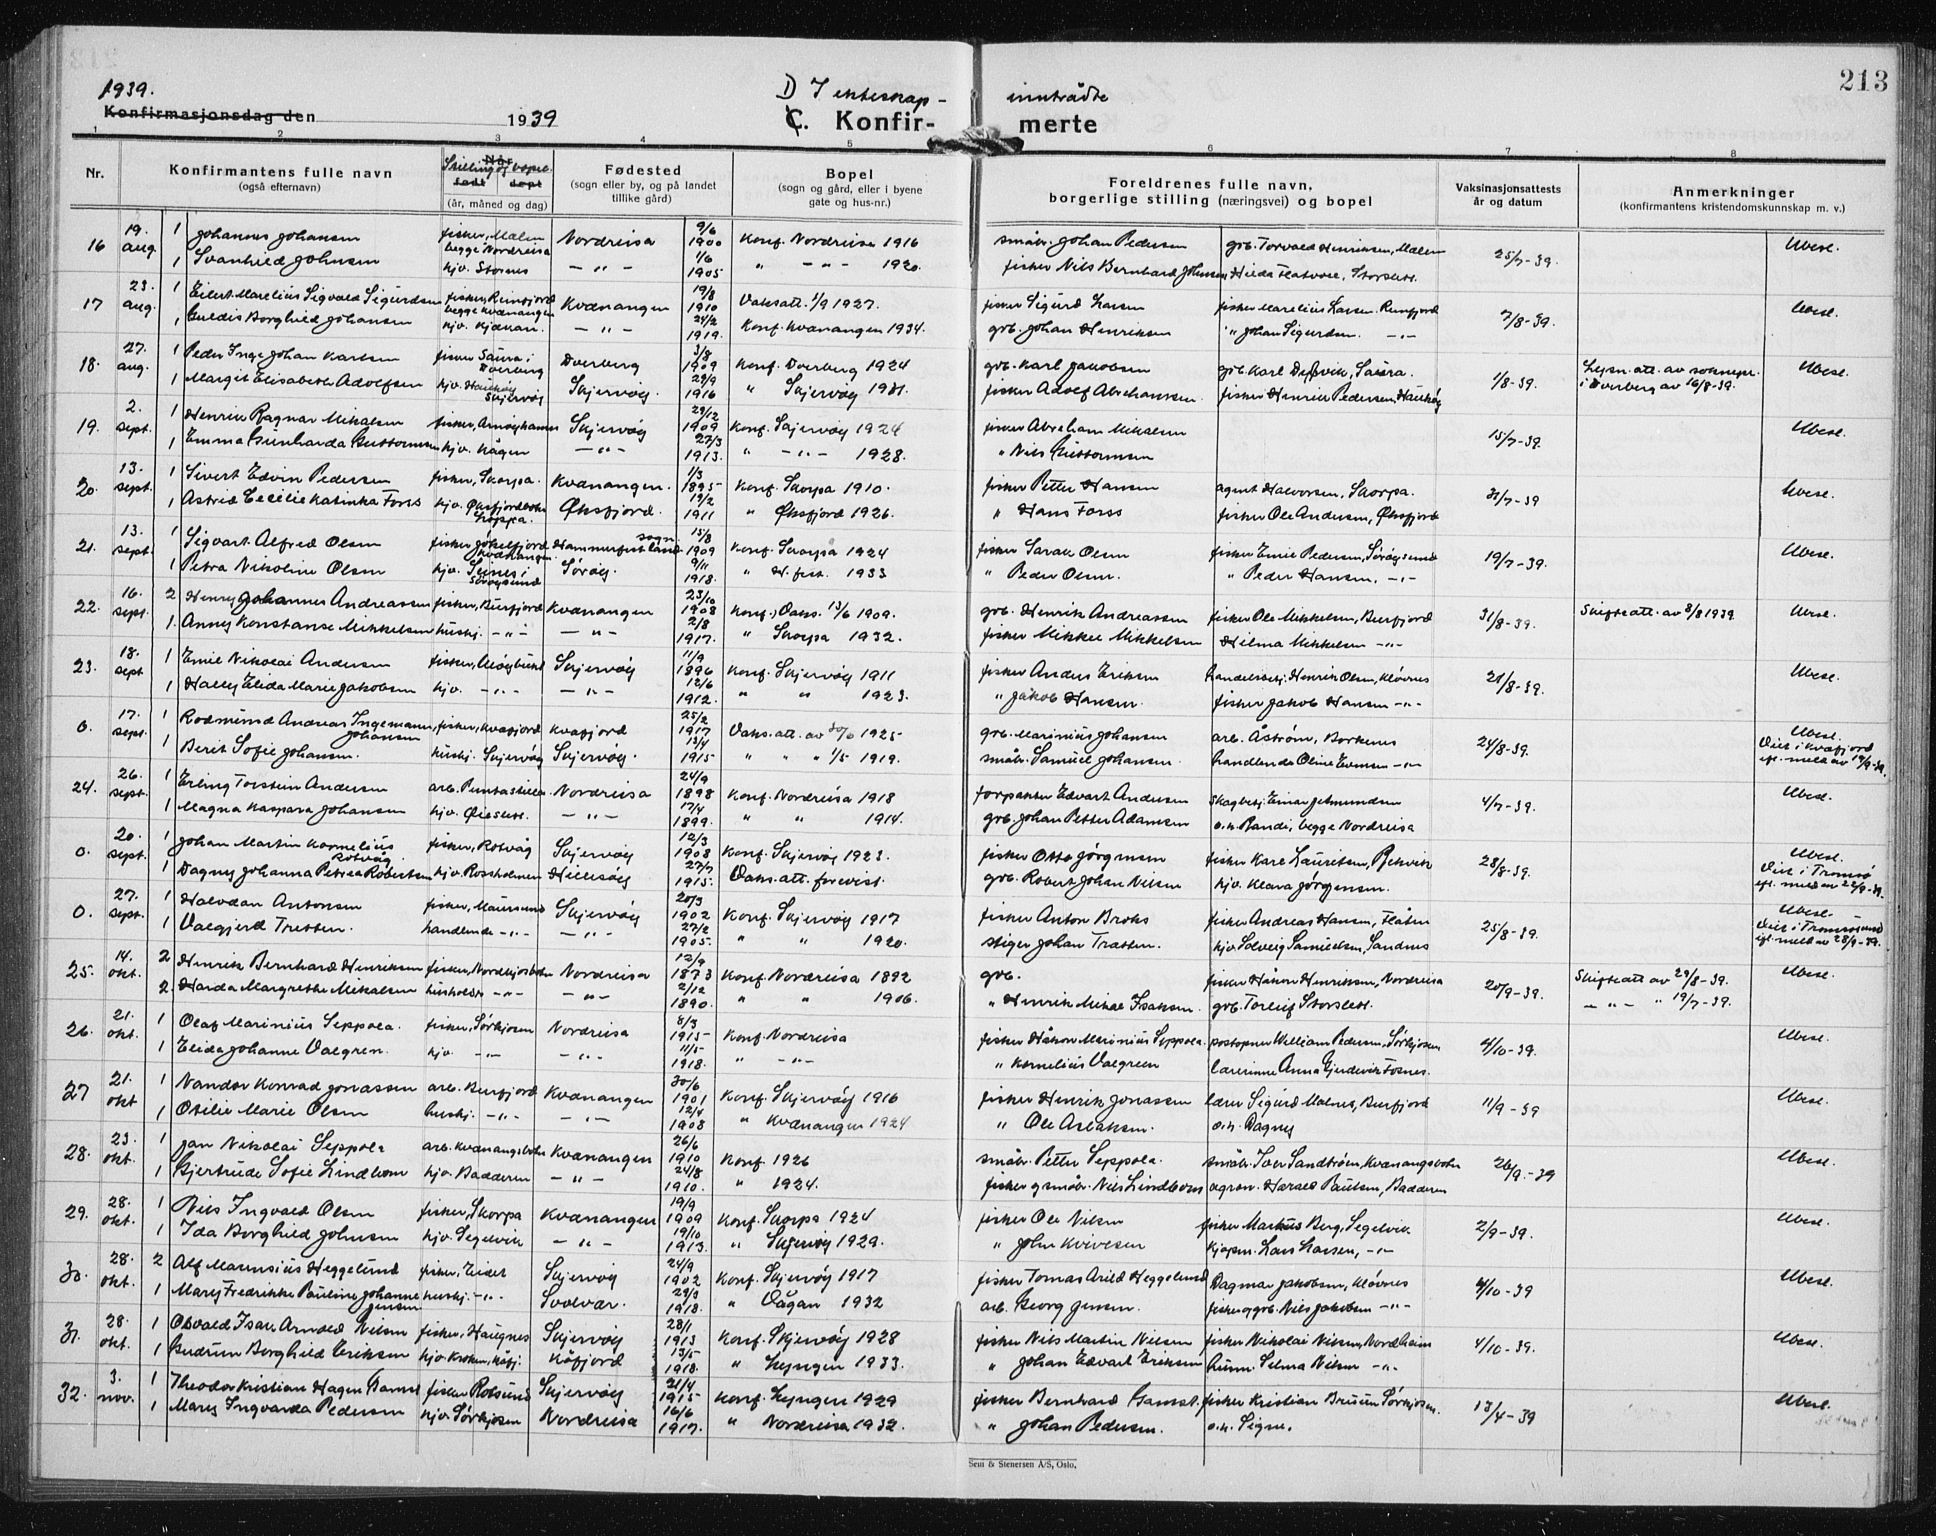 213
1939.
Konfirmasjonsdag den 1939
D I ekteskap - inntrådte
C. Konfir- merte
1 2 3 4 5 6 7 8
Nr. Konfirmantens fulle navn Når Stilling og bopel. Fødested Bopel Foreldrenes fulle navn, Vaksinasjonsattests Anmerkninger
(også efternavn) født døpt (sogn eller by, og på landet (sogn og gård, eller i byene borgerlige stilling (næringsvei) og bopel år og datum (konfirmantens kristendomskunnskap m. v.)
(år, måned og dag) tillike gård) gate og hus-nr.)
16 19. aug. 1 Johannes Johansen fisker, Mælen begge Nordreisa Nordreisa 9/6 1900 Konf. Nordreisa 1916 småbr. Johan Pedersen grb. Torvald Henriksen, Mælen 25/7-39. Ubesl.
1 Svanhild Johnsen hjv. Stornes -"- 1/6 1905 " -"- 1920. fisker Nils Bernhard Johnsen Hilda Flatvoll, Storslett.
17 23. aug. 1 Eilert Marelius Sigvald Sigurdsen fisker, Reinfjord begge Kvænangen Kvænangen 19/8 1910 Vaks.att. 1/9 1927. fisker Sigurd Larsen fisker Marelius Larsen. Reinfjord 7/8-39. Ubesl.
1 Guldis Borghild Johansen hjv. Kjænan. -"- 24/2 1919. Konf. Kvænangen 1934. grb. Johan Henriksen " Johan Sigurdsen. -"-
18. 27. aug. 1 Peder Inge Johan Karlsen fisker Saura i Dverberg Dverberg 3/8 1909 Konf. Dverberg 1924 grb. Karl Jakobsen grb. Karl Dybvik, Saura. 1/8-39. Lysn. att. av sokneprs. i Dverberg av 16/8-39. Ubesl.
1 Margit Elisabeth Adolfsen hjv. Haukøy Skjervøy Skjervøy. 29/9 1916 " Skjervøy 1931. fisker Adolf Abrahamsen. fisker Henrik Pedersen, Haukøy
19. 2. sept. 1 Henrik Ragnar Mikalsen fisker, Arnøyhamn Skjervøy 29/12 1909 Konf. Skjervøy 1924 fisker Abraham Mikalsen 15/7-39. Ubesl.
1 Emma Gunharda Guttormsen hjv. Kågen -"- 27/3 1913. " -"- 1928. " Nils Guttormsen
20. 13. sept. 1 Sivert Edvin Pedersen fisker, Skorpa. Kvænangen. 1/3 1895 Konf. Skorpa 1910. fisker Petter Hansen agent Halvorsen, Skorpa. 31/7-39 Ubesl.
1 Astrid Cecilie Katinka Forss hjv. Øksfjordbotn Loppa. Øksfjord. 19/2 1911 " Øksfjord 1926. " Hans Forss fisker Ole Andersen, Øksfjord
21. 13. sept. 1 Sigvart Alfred Olsen fisker Jøkelfjord Kvænangen Hammerfest land sogn. 15/8 1909 Konf. Skorpa 1924 fisker Sarak Olsen fisker Emil Pedersen, Sørøysund 19/7-39. Ubesl.
1 Petra Nikoline Olsen hjv. Seines i Sørøysund Sørøy. 9/11 1918. " H.fest. 1933 " Peder Olsen. " Peder Hansen, -"-
22. 16. sept. 2 Henry Johannes Andreassen fisker, Burfjord Kvænangen 23/10 1908 Konf., Vaks. 13/6 1909. grb. Henrik Andreassen fisker Ole Mikkelsen, Burfjord 31/8-39. Skifteatt. av 8/8 1939 Ubesl.
1. Anny Konstanse Mikkelsen hushj. -"- -"- 2/8 1917. " Skorpa 1932. fisker Mikkel Mikkelsen Hilma Mikkelsen -"-
23. 18. sept 1 Emil Nikolai Andersen fisker, Uløybukt Skjervøy 11/9 1896 Konf. Skjervøy 1911 fisker Anders Eriksen handelsbetj. Henrik Olsen, Kløvnes 21/8-39. Ubesl.
1 Hally Elida Marie Jakobsen hjv. -"- -"- 12/6 1912. " " 1923. " Jakob Hansen. fisker Jakob Hansen -"-
0. 17. sept. 1 Rodmund Andreas Ingemann Johansen fisker, Kvæfjord Kvæfjord 25/2 1917 Vaks.att. av 30/6 1925 grb. Marinius Johansen arb. Åstrøm, Borkenes 24/8-39. Ubesl. Viet i Kvæfjord efl. meld av 19/9-39.
1 Berit Sofie Johansen. hushj. Skjervøy Skjervøy. 13/4 1915 " " " 1/5 1919. småbr. Samuel Johansen. handlende Oline Evensen -"-
24. 26. sept. 1 Erling Torstein Andersen arb. Puntastilla Nordreisa 24/9 1898 Konf. Nordreisa 1918 forpakter Edvart Andersen skogbetj. Einar Jetmundsen 4/7-39. Ubesl.
1 Magna Kaspara Johansen hjv. Øieslett. -"- 17/4 1899. " " 1914. grb. Johan Petter Adamsen o.h. Randi, begge Nordreisa
0. 20. sept. 1 Johan Martin Kornelius Rotvåg fisker, Rotvåg Skjervøy 12/3 1908 Konf. Skjervøy 1923. fisker Otto Jørgensen fisker Karl Lauritsen, Rekvik 28/8-39. Ubesl. Viet i Tromsø efl. meld av 22/9-39.
1 Dagny Johanna Petrea Robertsen hjv. Rossholmen Hillesøy 27/7 1915. Vaks.att. forevist. grb. Robert Johan Nilsen hjv. Klara Jørgensen.
0. 27. sept. 1 Halvdan Antonsen fisker, Maursund Skjervøy 20/3 1902 Konf. Skjervøy 1917 fisker Anton Broks fisker Andreas Hansen, Flåten 25/8-39. Ubesl. Viet i Tromsøsund efl. meld av 28/9-39.
1 Valgjerd Tretten. handlende -"- -"- 27/2 1905. " " 1920. stiger Johan Trætten. hjv. Solveig Samuelsen, Sandnes
25. 14. okt. 2 Henrik Bernhard Henriksen fisker, Nordkjosbotn Nordreisa 12/9 1873 Konf. Nordreisa 1892 grb. fisker Håkon Henriksen, Nordreisa 20/9-39. Skifteatt av 29/8-39. Ubesl.
2. Harda Margrethe Mikalsen husholder -"- -"- 2/12 1890. " " 1906. " Henrik Mikal Isaksen. grb. Torleif Storslett. -"- " 19/7-39.
26. 21. okt. 1 Olaf Marinius Seppola. fisker, Sørkjosen Nordreisa 8/3 1915 Konf. Nordreisa fisker Håkon Marinius Seppola. postopner William Pedersen, Sørkjosen 4/10-39. Ubesl.
1 Elida Johanne Valgren. hjv. -"- -"- 11/5 1918. " -"- " Kornelius Valgreen lærerinne Anna Gjerdevik Fosnes.
27 21. okt 1 Nandor Konrad Jonassen arb. Burfjord Kvænangen 30/6 1901 Konf. Skjervøy 1916 fisker Henrik Jonassen lærer Sigurd Malnes, Burfjord 11/9-39 Ubesl.
1 Otilie Marie Olsen hushj. -"- -"- 12/4 1908 " Kvænangen 1924 " Ole Aslaksen. o.h. Dagny
28. 23. okt. 1 Jan Nikolai Seppola arb. Kvænangsbotn Kvænangen 26/6 1910 Konf. 1926 småbr. Petter Seppola. småbr. Iver Sandtrøen, Kvænangsbotn 26/9.-39 Ubesl.
1 Gjertrude Sofie Lindbom hjv. Badderen -"- 24/8 1910. " 1924. fisker og småbr. Nils Lindbom agron. Harald Paulsen, Badderen
29. 28. okt. 1 Nils Ingvald Olsen fisker, Skorpa Kvænangen 19/9 1909 Konf. Skorpa 1924 fisker Ole Nilsen fisker Markus Berg, Segelvik 2/9-39. Ubesl.
1 Ida Borghild Johnsen hjv. Segelvik -"- 19/10 1913. " Skjervøy 1929. " John Kvivesen kjøpm. Lars Larsen, -"-
30. 28. okt. 2 Alf Marensius Heggelund fisker, Eidet Skjervøy 24/9 1902 Konf. Skjervøy 1917 fisker Tomas Arild Heggelund Dagmar Jakobsen, Kløvnes 4/10-39 Ubesl.
1 Mary Fredrikke Pauline Johanne Jensen hushj. -"- Svolvær. 29/3 1918. " Vågan 1932 arb. Georg Jensen. fisker og grb. Nils Jakobsen -"-
31. 28. okt. 1 Osvald Isak Arnold Nilsen fisker, Haugnes Skjervøy 28/1 1913 Konf. Skjervøy 1928 fisker Nils Martin Nilsen fisker Nikolai Nilsen, Nordheim 4/10-39. Ubesl.
1 Gudrun Borghild Eriksen hjv. Kroken, Kåfj. Kåfjord 13/5 1918. " Lyngen 1933. " Johan Edvart Eriksen husm. Selma Nilsen -"-
32. 3. nov. 1 Theodor Kristian Hagen Bamst fisker Rotsund Skjervøy 21/4 1915 Konf. Lyngen 1929 fisker Bernhard Gamst. fisker Kristian Bruun Sørkjosen. 13/4-39 Ubesl.
1 Mary Ingvarda Pedersen hjv. Sørkjosen Nordreisa 16/6 1917. " Nordreisa 1932. " Johan Pedersen. o.h. Signe.
Sem & Stenersen A/S, Oslo.